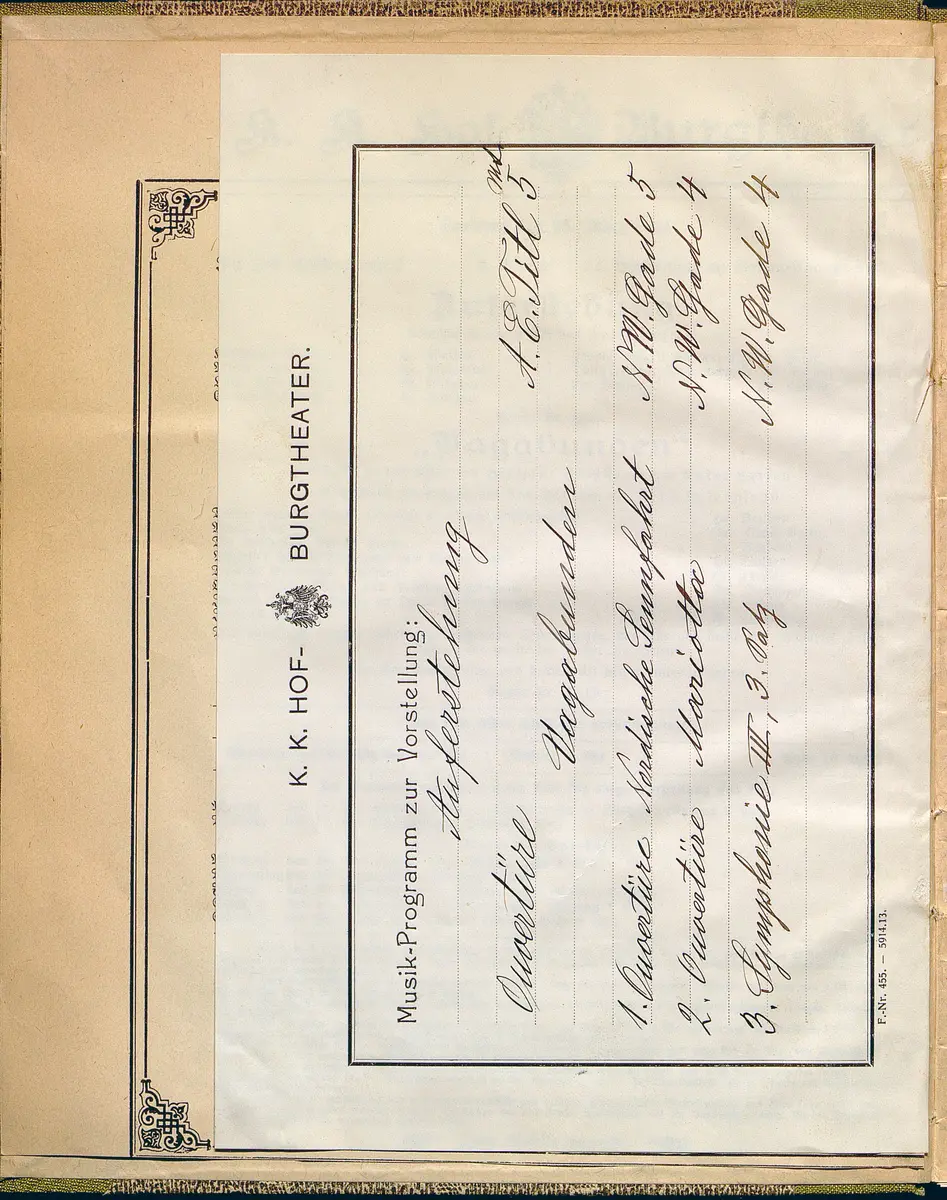 K. K. HOF- BURGTHEATER.
Musik-Programm zur Vorstellung:
Auferstehung
Mt.
Ouvertüre A. E. Titl 5
Vagabunden
1. Ouvertüre Nordische Sennfahrt N. W. Gade 5
2. Ouvertüre Mariotta N. W. Gade 4
3. Symphonie III, 3. Satz N. W. Gade 4
F.-Nr. 455. — 5914.13.